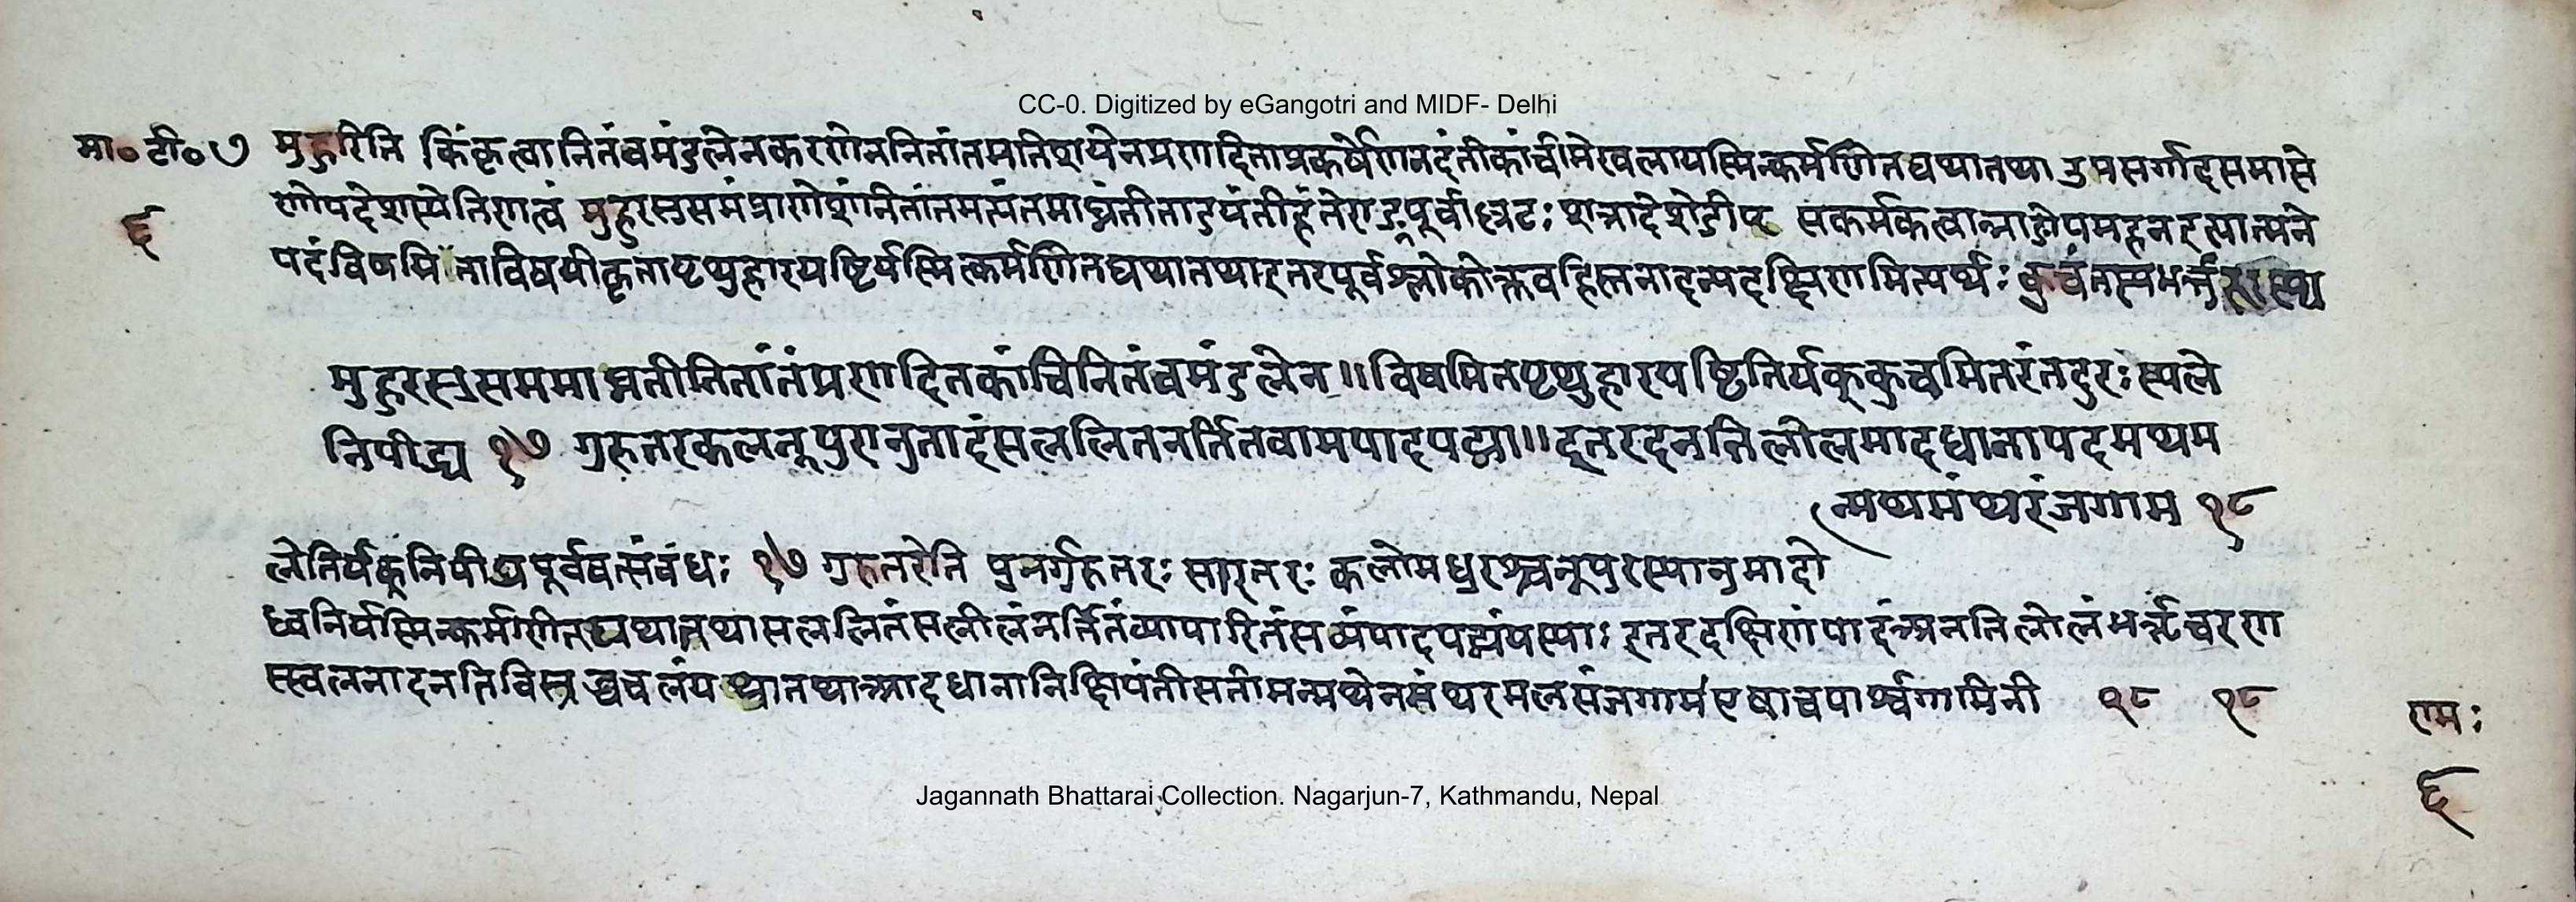 CC-0. Digitized by eGangotri and MIDF- Delhi
मा० टी० ७ मुहुरिति किंकृत्वानितंवमंडलेनकरणेननितांतमतिशयेनप्रणादिताप्रकर्षेणनदंतीकांचीमेखलायस्मिन्कर्मणितद्यथातथा उपसर्गादसमासे
६ णोपदेशस्येतिणत्वं मुहुरसुसमंप्राणेशंनितांतमत्यंतमाघ्नंतीताडयंतीहंतेराङ्पूर्वाल्लटः शत्रादेशेङीप् सकर्मकत्वान्नाङोयमहनइत्यात्मने
पदंविषमिताविषयीकृतापृथुहारयष्टिर्यस्मिन्कर्मणितद्यथातथाइतरपूर्वश्लोकोक्तवहिस्तनादन्यदक्षिणमित्यर्थः कुचंतस्यभर्त्तु
मुहुरसुसममाघ्नतीनितांतंप्रणादितकांचिनितंवमंडलेन॥विषमितपृथुहारयष्टितिर्यक्कुचमितरंतदुरःस्थले
निपीड्य १७ गुरुतरकलनूपुरानुनादंसललितनर्तितवामपादपद्मा॥इतरदनतिलोलमादधानापदमथम
न्मथमंथरंजगाम १८
लेतिर्यक्निपीड्यपूर्ववत्संवंधः १७ गुरुतरेति पुनर्गुरुतरः सांद्रतरः कलोमधुरश्चनूपुरस्यानुनादो
ध्वनिर्यस्मिन्कर्मणीतद्यथातथासललितंसलीलंनर्तितंव्यापारितंसव्यंपादपद्मंयस्याः इतरदक्षिणंपादंअनतिलोलंभर्त्तृचरण
स्खलनादनतिविस्तृ चवलंयथातथाआदधानानिक्षिपंतीसतीमन्मथेनमंथरमलसंजगाम एषाचपार्श्वगामिनी १८ १८
राम:
६
Jagannath Bhattarai Collection. Nagarjun-7, Kathmandu, Nepal